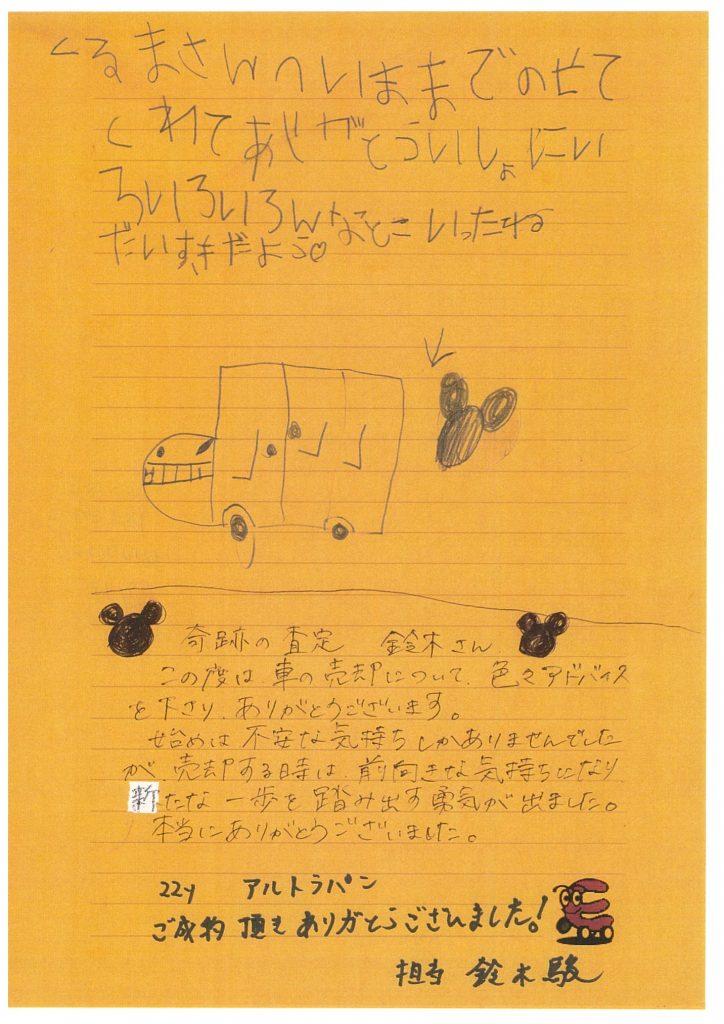 くるまさんへいままでのせて
くれてありがとういしょにい
ろいろいろんなとこいったね
だいすきだよう♡
奇跡の査定 鈴木さん
この度は、車の売却について、色々アドバイス
を下さり、ありがとうございます。
始めは不安な気持ちしかありませんでした
が、売却する時は、前向きな気持ちになり
新たな一歩を踏み出す勇気が出ました。
本当にありがとうございました。
22y アルトラパン
ご成約頂きありがとうございました!
担当 鈴木駿